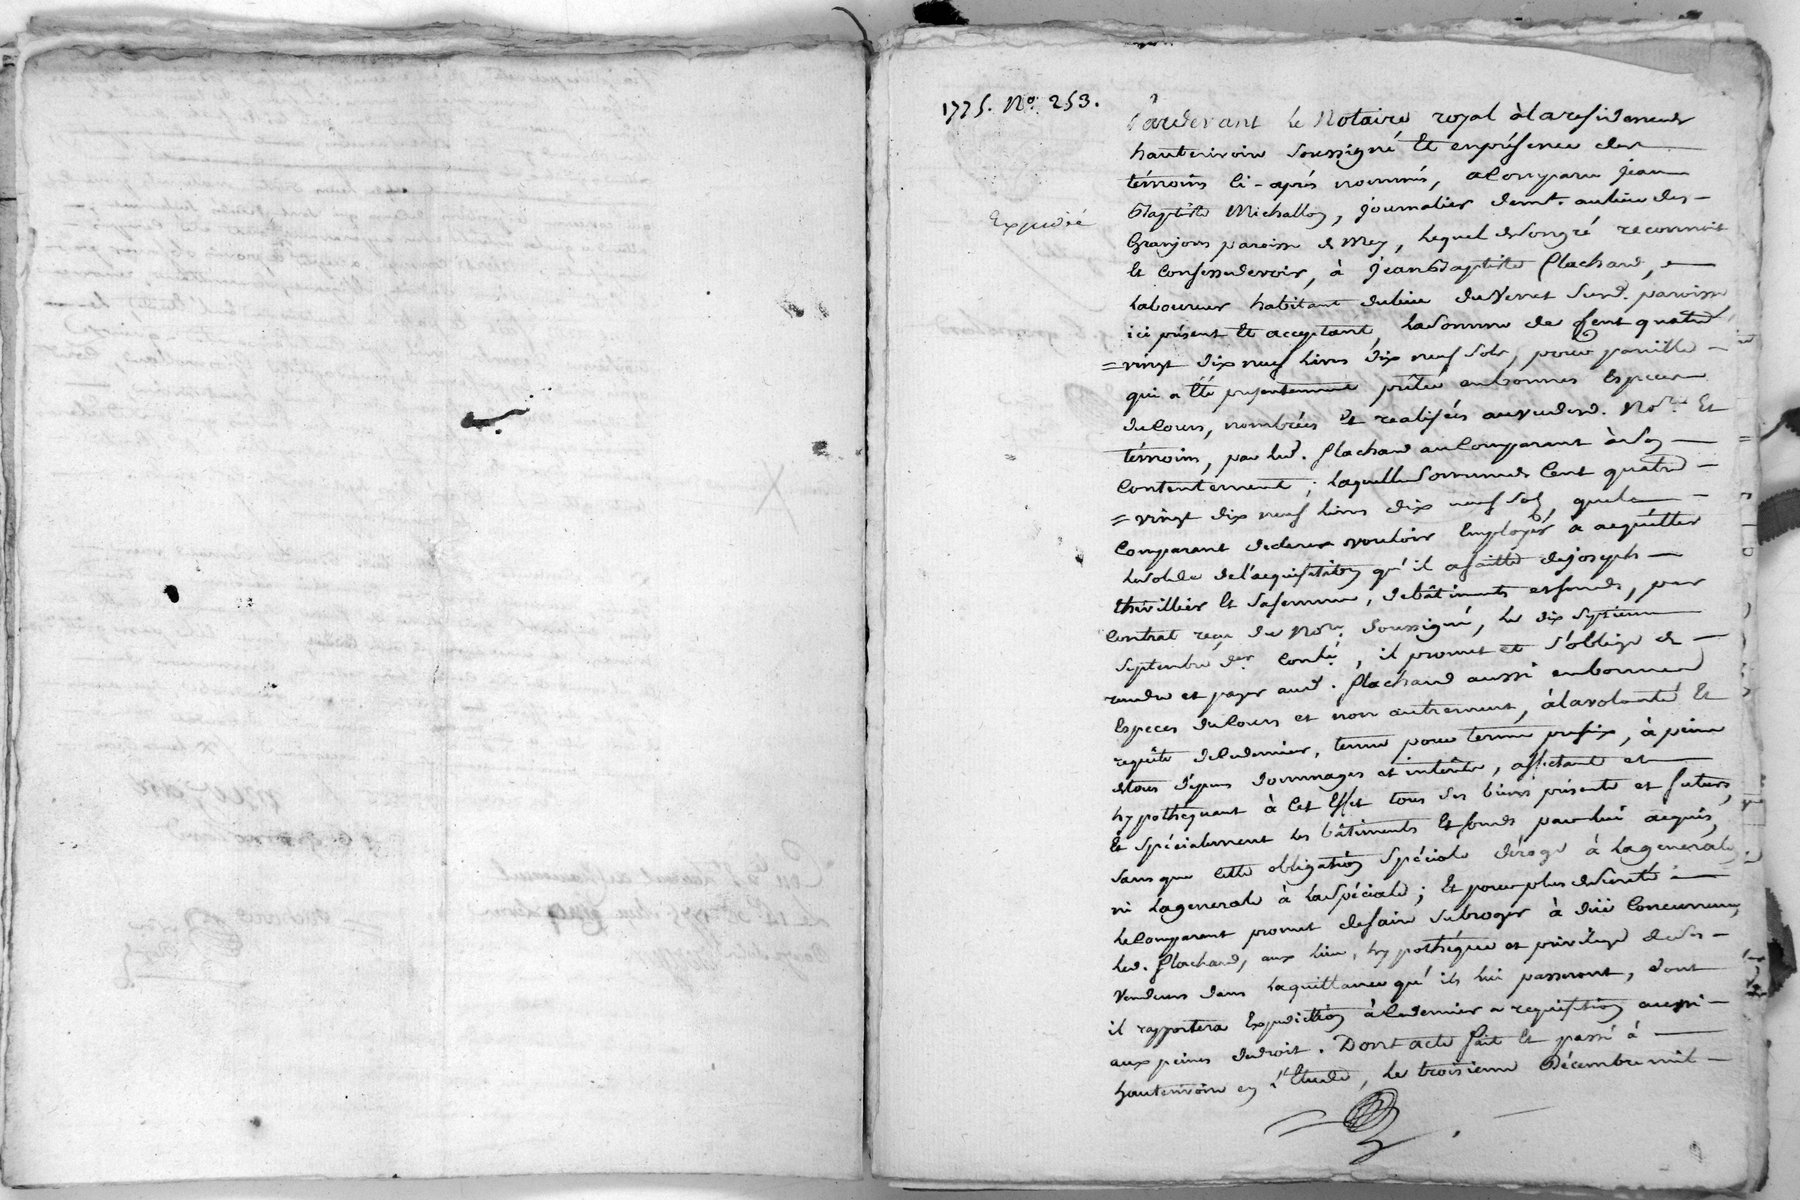 1775. No. 253.
Expedié
Pardevant le Notaire royal à la residence de
hauterivoire soussigné Et en présence des
témoins Ci-après nommés, a Comparu Jean
Baptiste Michallon, journalier demt. au lieu des
Granjons paroisse de Mey, lequel de son gré reconnoit
Et Confesse devoir, à Jean Baptiste Flachard,
laboureur habitant du lieu du Verret susd. paroisse,
ici présent Et acceptant, la somme de Cent quatre
= vingt dix neuf livres dix neuf sols, pour pareille
qui a Eté presentement prêtée en bonnes Especes
de Cours, nombrées et realisées au vu desd. Nore. Et
témoins, par led. Flachard au Comparant à son
Contentement ; laquelle somme de Cent quatre
= vingt dix neuf livres dix neuf sols, que le
Comparant declare vouloir Employer a acquitter
le solde de l'acquisition qu'il a faitte de joseph
thévillier Et sa femme, de bâtiments et fonds, par
Contrat reçu du Nore. soussigné, le dix septieme
septembre der. Conlé, il promet et s'oblige de
rendre et payer aud. Flachard aussi en bonnes
Especes de Cours et non autrement, à la volonté Et
requête de Ce dernier, terme pour terme prefix, à peine
de tous dépens dommages et intérêts, affectant et
hypothequant à Cet Effet tous ses biens présents et futurs,
Et spécialement les bâtiments Et fonds par lui acquis,
sans que Cette obligation spéciale déroge à la generale,
ni la generale à la spéciale ; Et pour plus de sureté
le Comparant promet de faire subroger à düe Concurrence,
led. Flachard, aux lieu, hypothéque et privilege de ses
Vendeurs dans la quittance qu'ils lui passeront, dont
il rapportera Expedition à Ce dernier a requisition aussi
aux peines de droit. Dont acte fait Et passé à
hauterivoire en l'Etude, le troisieme Décembre mil